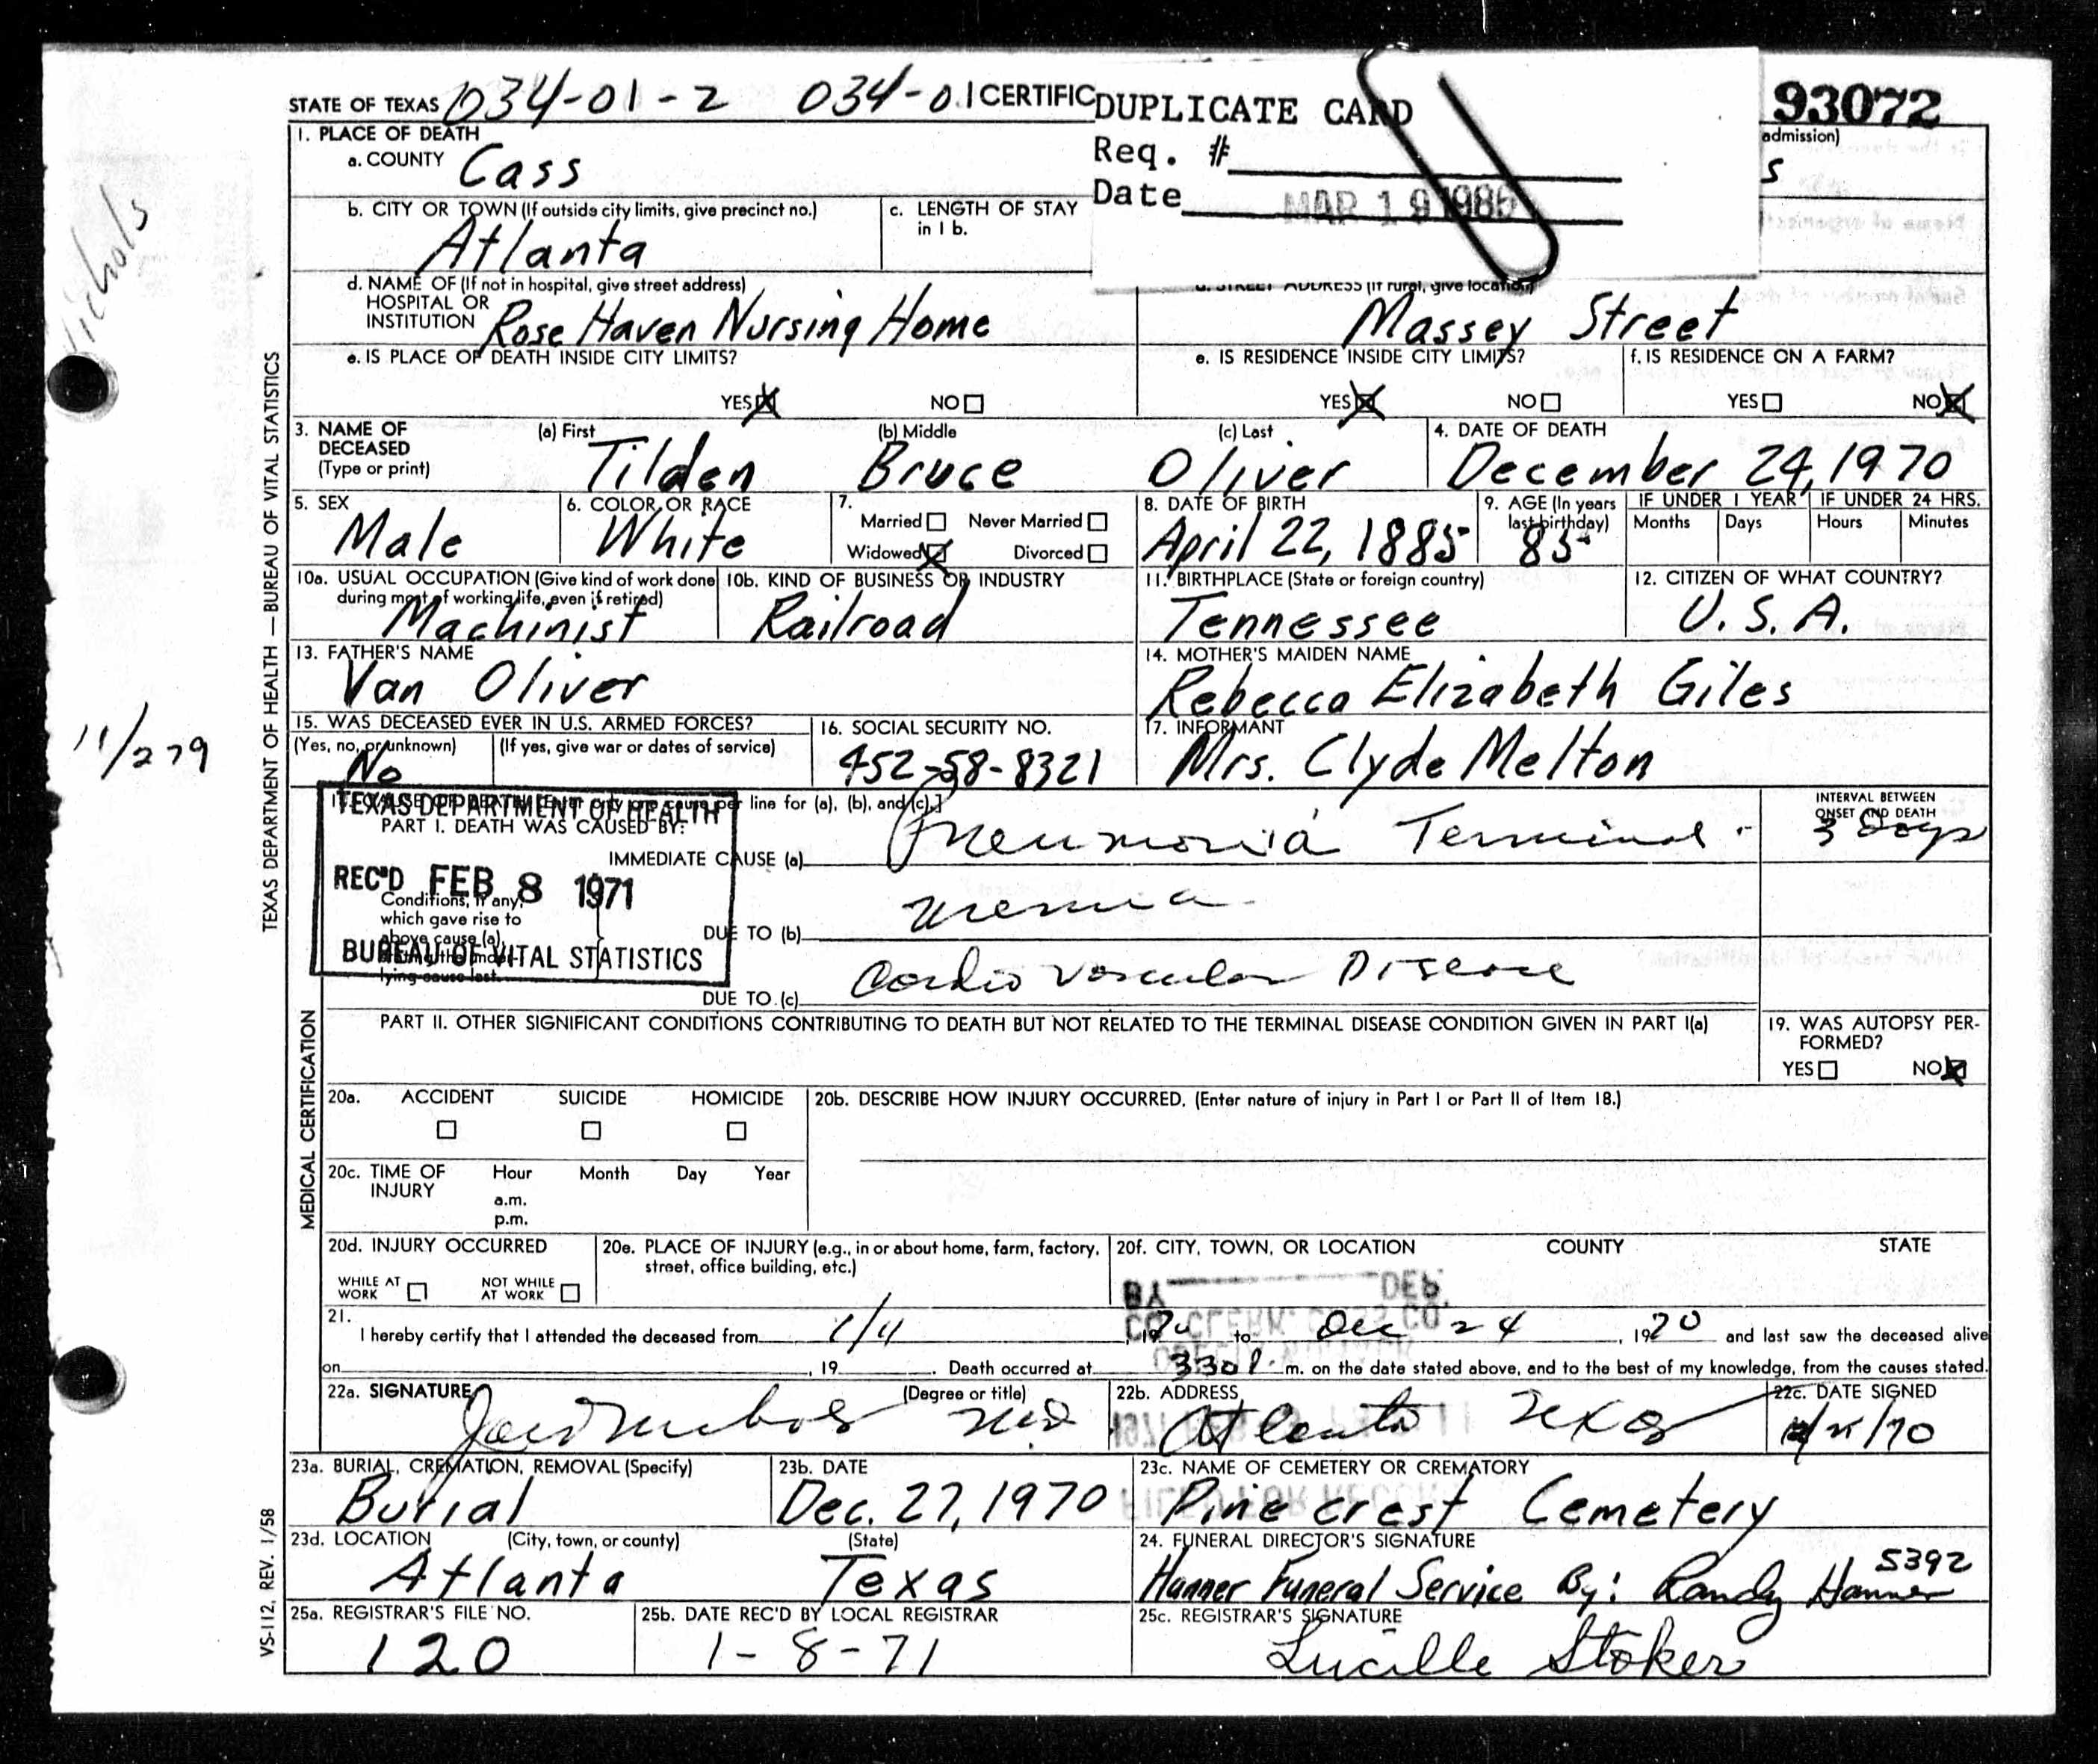 STATE OF TEXAS 034-01-2 034-01 CERTIFIC
DUPLICATE CARD
93072
Req. #
Date MAR 19 1986
admission)
s
1. PLACE OF DEATH
a. COUNTY Cass
b. CITY OR TOWN (If outside city limits, give precinct no.)
Atlanta
c. LENGTH OF STAY
in 1 b.
d. NAME OF (If not in hospital, give street address)
HOSPITAL OR
INSTITUTION Rose Haven Nursing Home
d. STREET ADDRESS (If rural, give location)
Massey Street
e. IS PLACE OF DEATH INSIDE CITY LIMITS?
YES NO
e. IS RESIDENCE INSIDE CITY LIMITS?
YES NO
f. IS RESIDENCE ON A FARM?
YES NO
3. NAME OF
DECEASED
(Type or print)
(a) First (b) Middle (c) Last
Tilden Bruce Oliver
4. DATE OF DEATH
December 24, 1970
5. SEX
Male
6. COLOR OR RACE
White
7.
Married Never Married
Widowed Divorced
8. DATE OF BIRTH
April 22, 1885
9. AGE (In years
last birthday)
85
IF UNDER 1 YEAR IF UNDER 24 HRS.
Months Days Hours Minutes
10a. USUAL OCCUPATION (Give kind of work done
during most of working life, even if retired)
Machinist
10b. KIND OF BUSINESS OR INDUSTRY
Railroad
11. BIRTHPLACE (State or foreign country)
Tennessee
12. CITIZEN OF WHAT COUNTRY?
U.S.A.
13. FATHER'S NAME
Van Oliver
14. MOTHER'S MAIDEN NAME
Rebecca Elizabeth Giles
15. WAS DECEASED EVER IN U.S. ARMED FORCES?
(Yes, no, or unknown) (If yes, give war or dates of service)
No
16. SOCIAL SECURITY NO.
452-58-8321
17. INFORMANT
Mrs. Clyde Melton
18. CAUSE OF DEATH [Enter only one cause per line for (a), (b), and (c).]
PART I. DEATH WAS CAUSED BY:
IMMEDIATE CAUSE (a) Pneumonia Terminal
INTERVAL BETWEEN
ONSET AND DEATH
3 Days
Conditions, if any,
which gave rise to
above cause (a),
stating the under-
lying cause last.
DUE TO (b) uremia
DUE TO (c) Cardio vascular Disease
TEXAS DEPARTMENT OF HEALTH
REC'D FEB 8 1971
BUREAU OF VITAL STATISTICS
PART II. OTHER SIGNIFICANT CONDITIONS CONTRIBUTING TO DEATH BUT NOT RELATED TO THE TERMINAL DISEASE CONDITION GIVEN IN PART I(a)
19. WAS AUTOPSY PER-
FORMED?
YES NO
20a. ACCIDENT SUICIDE HOMICIDE
20b. DESCRIBE HOW INJURY OCCURRED. (Enter nature of injury in Part I or Part II of Item 18.)
20c. TIME OF
INJURY
Hour Month Day Year
a.m.
p.m.
20d. INJURY OCCURRED
WHILE AT
WORK
NOT WHILE
AT WORK
20e. PLACE OF INJURY (e.g., in or about home, farm, factory,
street, office building, etc.)
20f. CITY, TOWN, OR LOCATION COUNTY STATE
21.
I hereby certify that I attended the deceased from 1/11, 1970 to Dec 24, 1970 and last saw the deceased alive
on , 19 . Death occurred at 330 P m. on the date stated above, and to the best of my knowledge, from the causes stated.
22a. SIGNATURE (Degree or title)
Nichols MD
22b. ADDRESS
Atlanta Texas
22c. DATE SIGNED
/70
23a. BURIAL, CREMATION, REMOVAL (Specify)
Burial
23b. DATE
Dec. 27, 1970
23c. NAME OF CEMETERY OR CREMATORY
Pine crest Cemetery
23d. LOCATION (City, town, or county) (State)
Atlanta Texas
24. FUNERAL DIRECTOR'S SIGNATURE
Hanner Funeral Service By: Randy Hanner 5392
25a. REGISTRAR'S FILE NO.
120
25b. DATE REC'D BY LOCAL REGISTRAR
1-8-71
25c. REGISTRAR'S SIGNATURE
Lucille Stoker
TEXAS DEPARTMENT OF HEALTH — BUREAU OF VITAL STATISTICS
MEDICAL CERTIFICATION
VS-112, REV. 1/58
Nichols
11/279